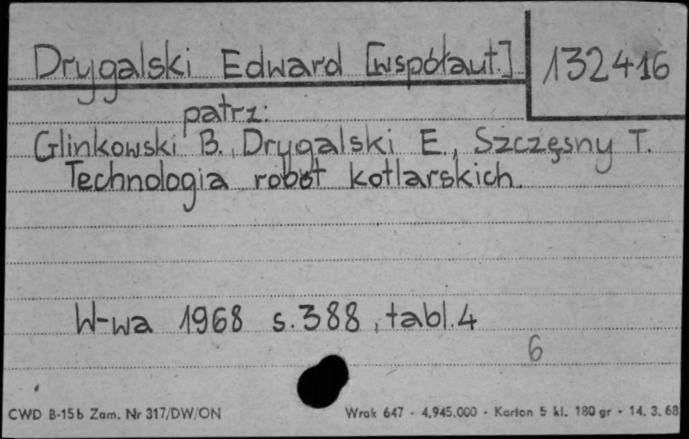 Drygalski Edward [współaut.] 132416
patrz:
Glinkowski B., Drygalski E., Szczęsny T.
Technologia robót kotlarskich.
W-wa 1968 s. 388, tabl. 4
6
CWD B-15b Zam. Nr 317/DW/ON Wrok 647 - 4.945.000 - Karton 5 kl. 180 gr - 14. 3. 68